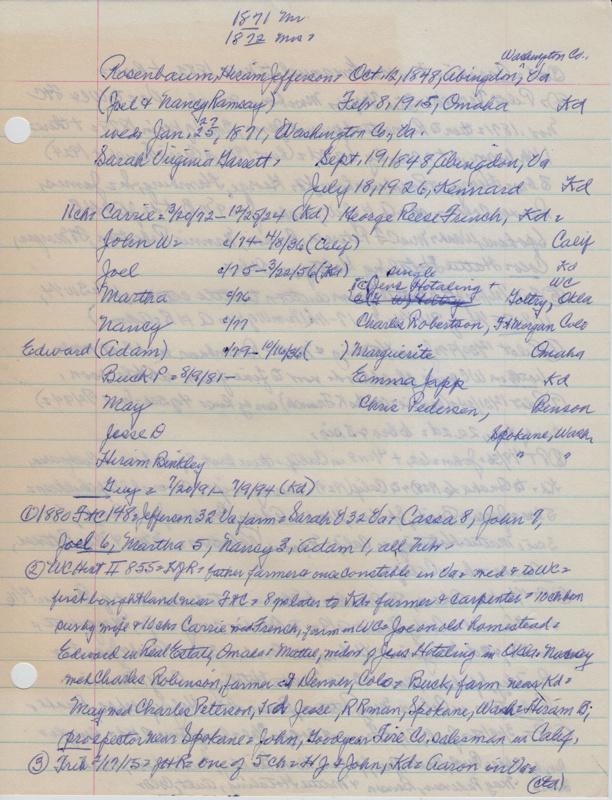 1871 Mr
1872 Mrs?
Washington Co.,
Rosenbaum, Hiram Jefferson = Oct. 12, 1848, Abingdon, Va
(Joel & Nancy Ramsay) Feb 8, 1915, Omaha Kd
wed = Jan. 25, 1871, Washington Co., Va.
Sarah Virginia Garrett = Sept. 19, 1848, Abingdon, Va
July 18, 1926, Kennard Kd
11 chs Carrie = 3/20/72 - 12/25/24 (Kd) George Reese French, Kd =
John W = c/74 - 4/8/36 (Calif) Calif
Joel c/75 - 3/22/56 (Kd) single Kd
Martha c/76 Jens Hotaling + WC
Goltry, Okla
Nancy c/77 Charles Robertson, Ft Morgan Colo
Edward (Adam) c/79 - 10/16/36 ( ) Marguerite Omaha
Buck P = 8/9/81 - Emma Japp Kd
May Chris Pedersen, Benson
Jesse D Spokane, Wash
Hiram Binkley " "
Guy = 7/20/91 - 7/9/94 (Kd)
① 1880 FtC 148 = Jefferson 32 Va farm = Sarah G 32 Va = Cassa 8, John 7,
Joel 6, Martha 5, Nancy 3, Adam 1, all Neb =
② WC Hist II 855 = HJR = father farmer & once constable in Va = med & to WC =
first bought land near FtC = 8 yrs later to Kd = farmer & carpenter = 10 chs
surv by wife & 10 chs Carrie med French, farm in WC = Joe on old homestead =
Edward in Real Estate, Omaha = Mattie, widow of Jens Hotaling in Okla = Nancy
med Charles Robinson, farmer at Denver, Colo = Buck, farm near Kd =
May med Charles Peterson, Kd Jesse, RR man, Spokane, Wash = Hiram B,
prospector near Spokane = John, Goodyear Tire Co, salesman in Calif,
③ Trib 2/17/15 = HJR = one of 5 ch = HJ & John, Kd = Aaron in Va =
(ctd)